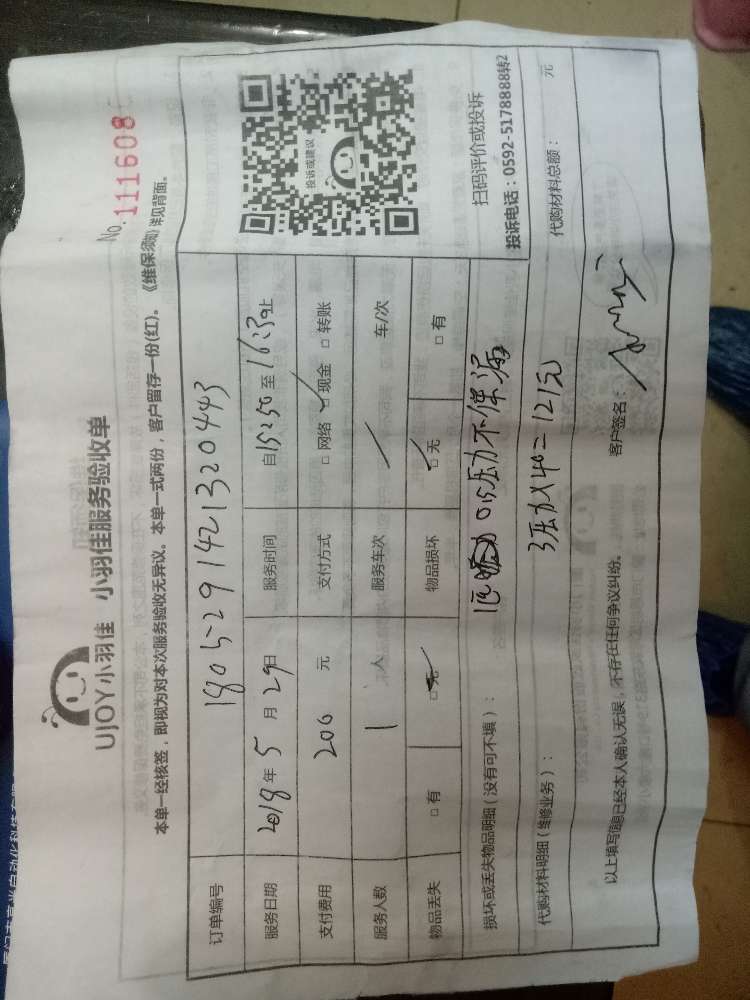 UJOY小羽佳 小羽佳服务验收单
No. 1111608
本单一经核签，即视为对本次服务验收无异议。本单一式两份，客户留存一份(红)。《维保须知》详见背面。
订单编号 1805291421320443
服务日期 2018年 5 月 29日 服务时间 自15:50 至 16:30止
支付费用 200 元 支付方式 □ 网络 □ 现金 □ 转账
服务人数 1 人 服务车次 / 车/次
物品丢失 □ 有 □ 无 物品损坏 □ 无 □ 有
投诉或建议
扫码评价或投诉
投诉电话：0592-5178888转2
损坏或丢失物品明细（没有可不填）： 压力不保漏
代购材料明细（维修业务）： =121元
代购材料总额： 元
以上填写信息已经本人确认无误，不存在任何争议纠纷。 客户签名：